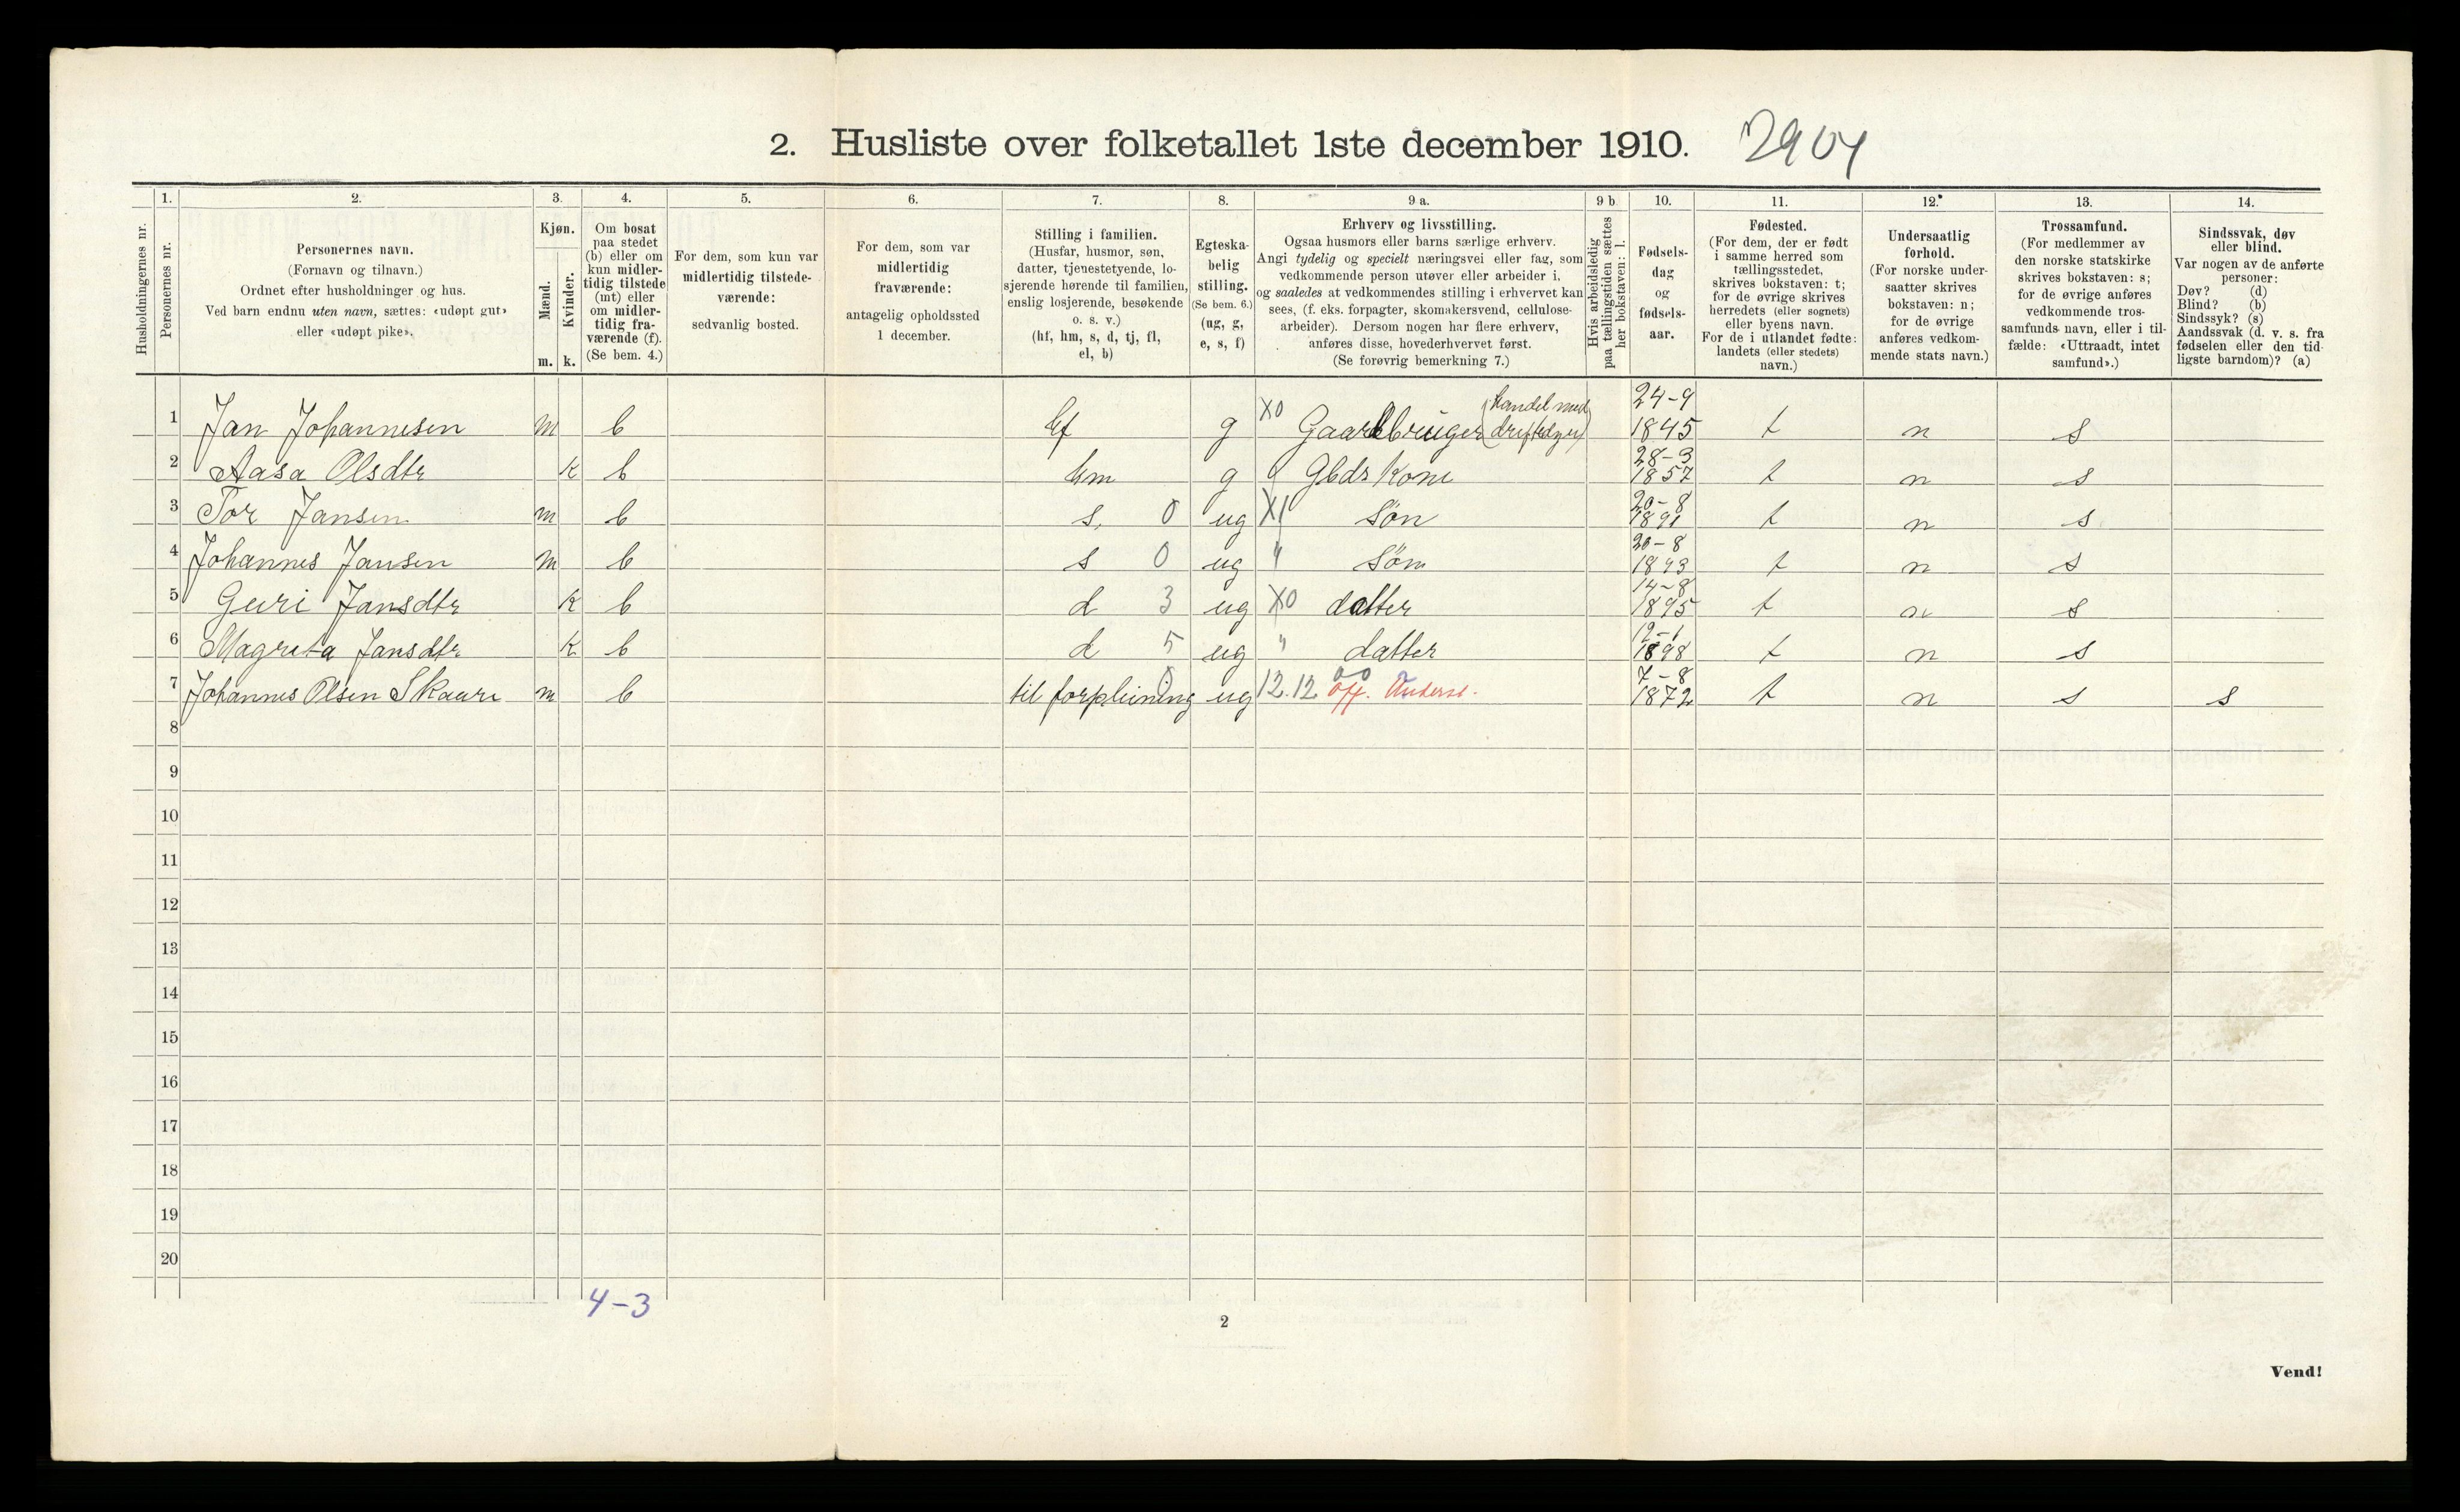 2. Husliste over folketallet 1ste december 1910. 2904
Husholdningernes nr.
1. Personernes nr.
2. Personernes navn. (Fornavn og tilnavn.) Ordnet efter husholdninger og hus. Ved barn endnu uten navn, sættes: «udøpt gut» eller «udøpt pike».
3. Kjøn. Mænd. m. Kvinder. k.
4. Om bosat paa stedet (b) eller om kun midlertidig tilstede (mt) eller om midlertidig fraværende (f). (Se bem. 4.)
5. For dem, som kun var midlertidig tilstedeværende: sedvanlig bosted.
6. For dem, som var midlertidig fraværende: antagelig opholdssted 1 december.
7. Stilling i familien. (Husfar, husmor, søn, datter, tjenestetyende, losjerende hørende til familien, enslig losjerende, besøkende o. s. v.) (hf, hm, s, d, tj, fl, el, b)
8. Egteskabelig stilling. (Se bem. 6.) (ug, g, e, s, f)
9 a. Erhverv og livsstilling. Ogsaa husmors eller barns særlige erhverv. Angi tydelig og specielt næringsvei eller fag, som vedkommende person utøver eller arbeider i, og saaledes at vedkommendes stilling i erhvervet kan sees, (f. eks. forpagter, skomakersvend, cellulosearbeider). Dersom nogen har flere erhverv, anføres disse, hovederhvervet først. (Se forøvrig bemerkning 7.)
9 b. Hvis arbeidsledig paa tællingstiden sættes her bokstaven: l.
10. Fødselsdag og fødselsaar.
11. Fødested. (For dem, der er født i samme herred som tællingsstedet, skrives bokstaven: t; for de øvrige skrives herredets (eller sognets) eller byens navn. For de i utlandet fødte: landets (eller stedets) navn.)
12. Undersaatlig forhold. (For norske undersaatter skrives bokstaven: n; for de øvrige anføres vedkommende stats navn.)
13. Trossamfund. (For medlemmer av den norske statskirke skrives bokstaven: s; for de øvrige anføres vedkommende trossamfunds navn, eller i tilfælde: «Uttraadt, intet samfund».)
14. Sindssvak, døv eller blind. Var nogen av de anførte personer: Døv? (d) Blind? (b) Sindssyk? (s) Aandssvak (d. v. s. fra fødselen eller den tidligste barndom)? (a)
1 Jan Johannesen m b hf g X0 Gaardbruger (handel med driftedyr) 24-9 1845 t n s
2 Aasa Olsdtr k b hm g Gbdr kone 28-3 1857 t n s
3 Tor Jansen m b s. 0 ug X1 Søn 20-8 1891 t n s
4 Johannes Jansen m b s 0 ug " Søn 20-8 1893 t n s
5 Guri Jansdtr k b d 3 ug X0 datter 14-8 1895 t n s
6 Magreta Jansdtr k b d 5 ug " datter 12-1 1898 t n s
7 Johannes Olsen Skaare m b til forpleining 0 ug 12.12 00 off. Underst. 7-8 1872 t n s s
8
9
10
11
12
13
14
15
16
17
18
19
20
4-3
2
Vend!